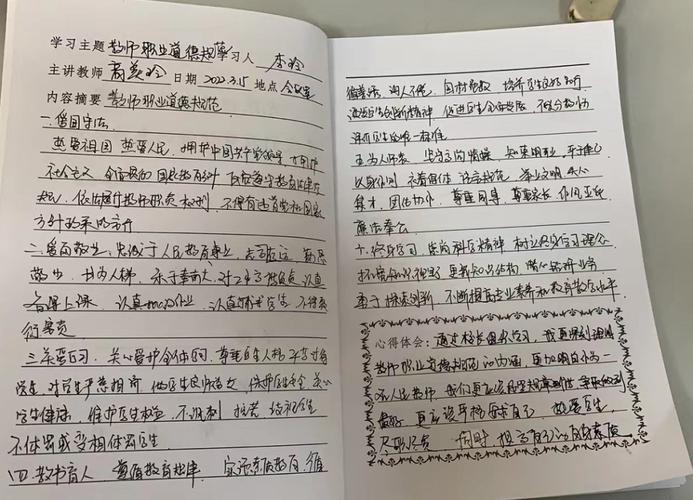 学习主题 教师职业道德规范 学习人 李玲
主讲教师 日期 2022.3.15 地点 会议室
内容摘要 教师职业道德规范
一、爱国守法
热爱祖国 热爱人民，拥护中国共产党领导 拥护
社会主义 全面贯彻国家教育方针 自觉遵守教育法律
法规，依法履行教师职责权利 不得有违背党和国家
方针政策的言行
二、爱岗敬业，忠诚于人民教育事业，志存高远 勤恳
敬业 甘为人梯，乐于奉献，对工作高度负责 认真
备课上课 认真批改作业 认真辅导学生 不得敷
衍塞责
三、关爱学生 关心爱护全体学生，尊重学生人格 平等对待
学生，对学生严慈相济 做学生良师益友，保护学生安全 关心
学生健康，维护学生权益 不讽刺 挖苦 歧视学生
不体罚或变相体罚学生
四、教书育人 遵循教育规律 实施素质教育 循
循善诱 诲人不倦，因材施教 培养学生良好品行
激发学生创新精神 促进学生全面发展 不以分数为
评价学生的唯一标准
五、为人师表 坚守高尚情操，知荣明耻，严于律己
以身作则 衣着得体 语言规范 举止文明 关心
集体 团结协作，尊重同事，尊重家长 作风正派
廉洁奉公
六、终身学习 崇尚科学精神 树立终身学习理念
拓宽知识视野 更新知识结构 潜心钻研业务
勇于探索创新 不断提高专业素养和教育教学水平
心得体会：通过校长组织学习，我更深刻
教师职业道德规范的内涵，更加明白作为一
名人民教师，我们更应该 争取做到
最好 更应该严格要求自己 做爱学生，
尽职尽责 同时 提高自己的自身素质